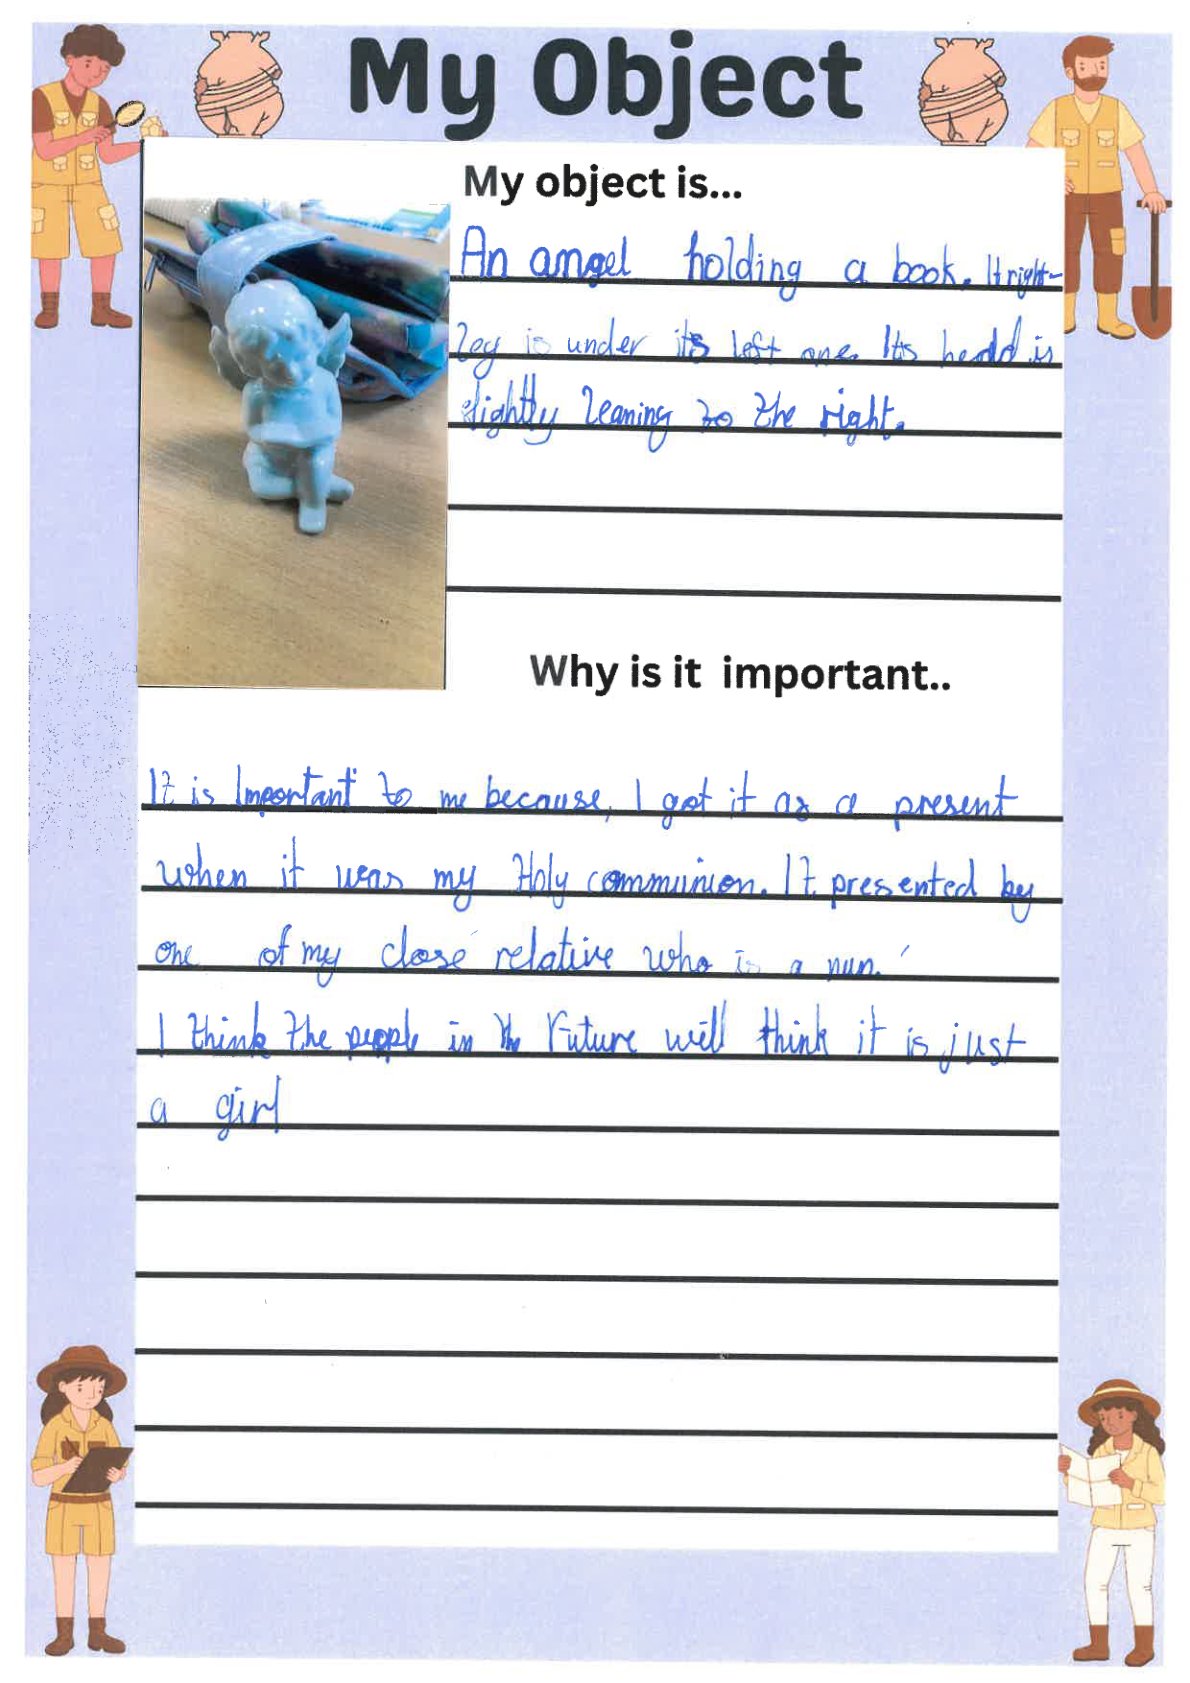 My Object
My object is...
An angel holding a book. It right-
leg is under its left one. Its head is
slightly leaning to the right.
Why is it important..
It is Important to me because, I got it as a present
when it was my Holy communion. It presented by
one of my close relative who is a nun.
I think the people in the Future will think it is just
a girl